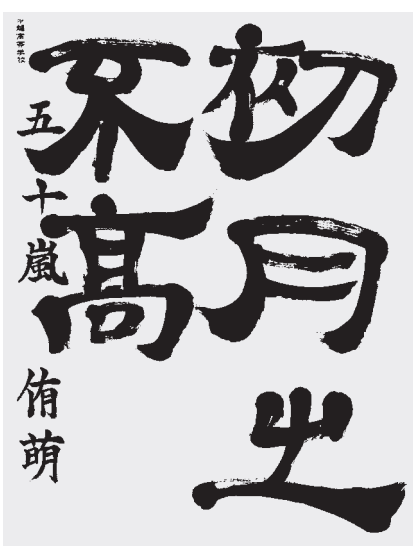 初月出
不高
高等学校
五十嵐 侑萌